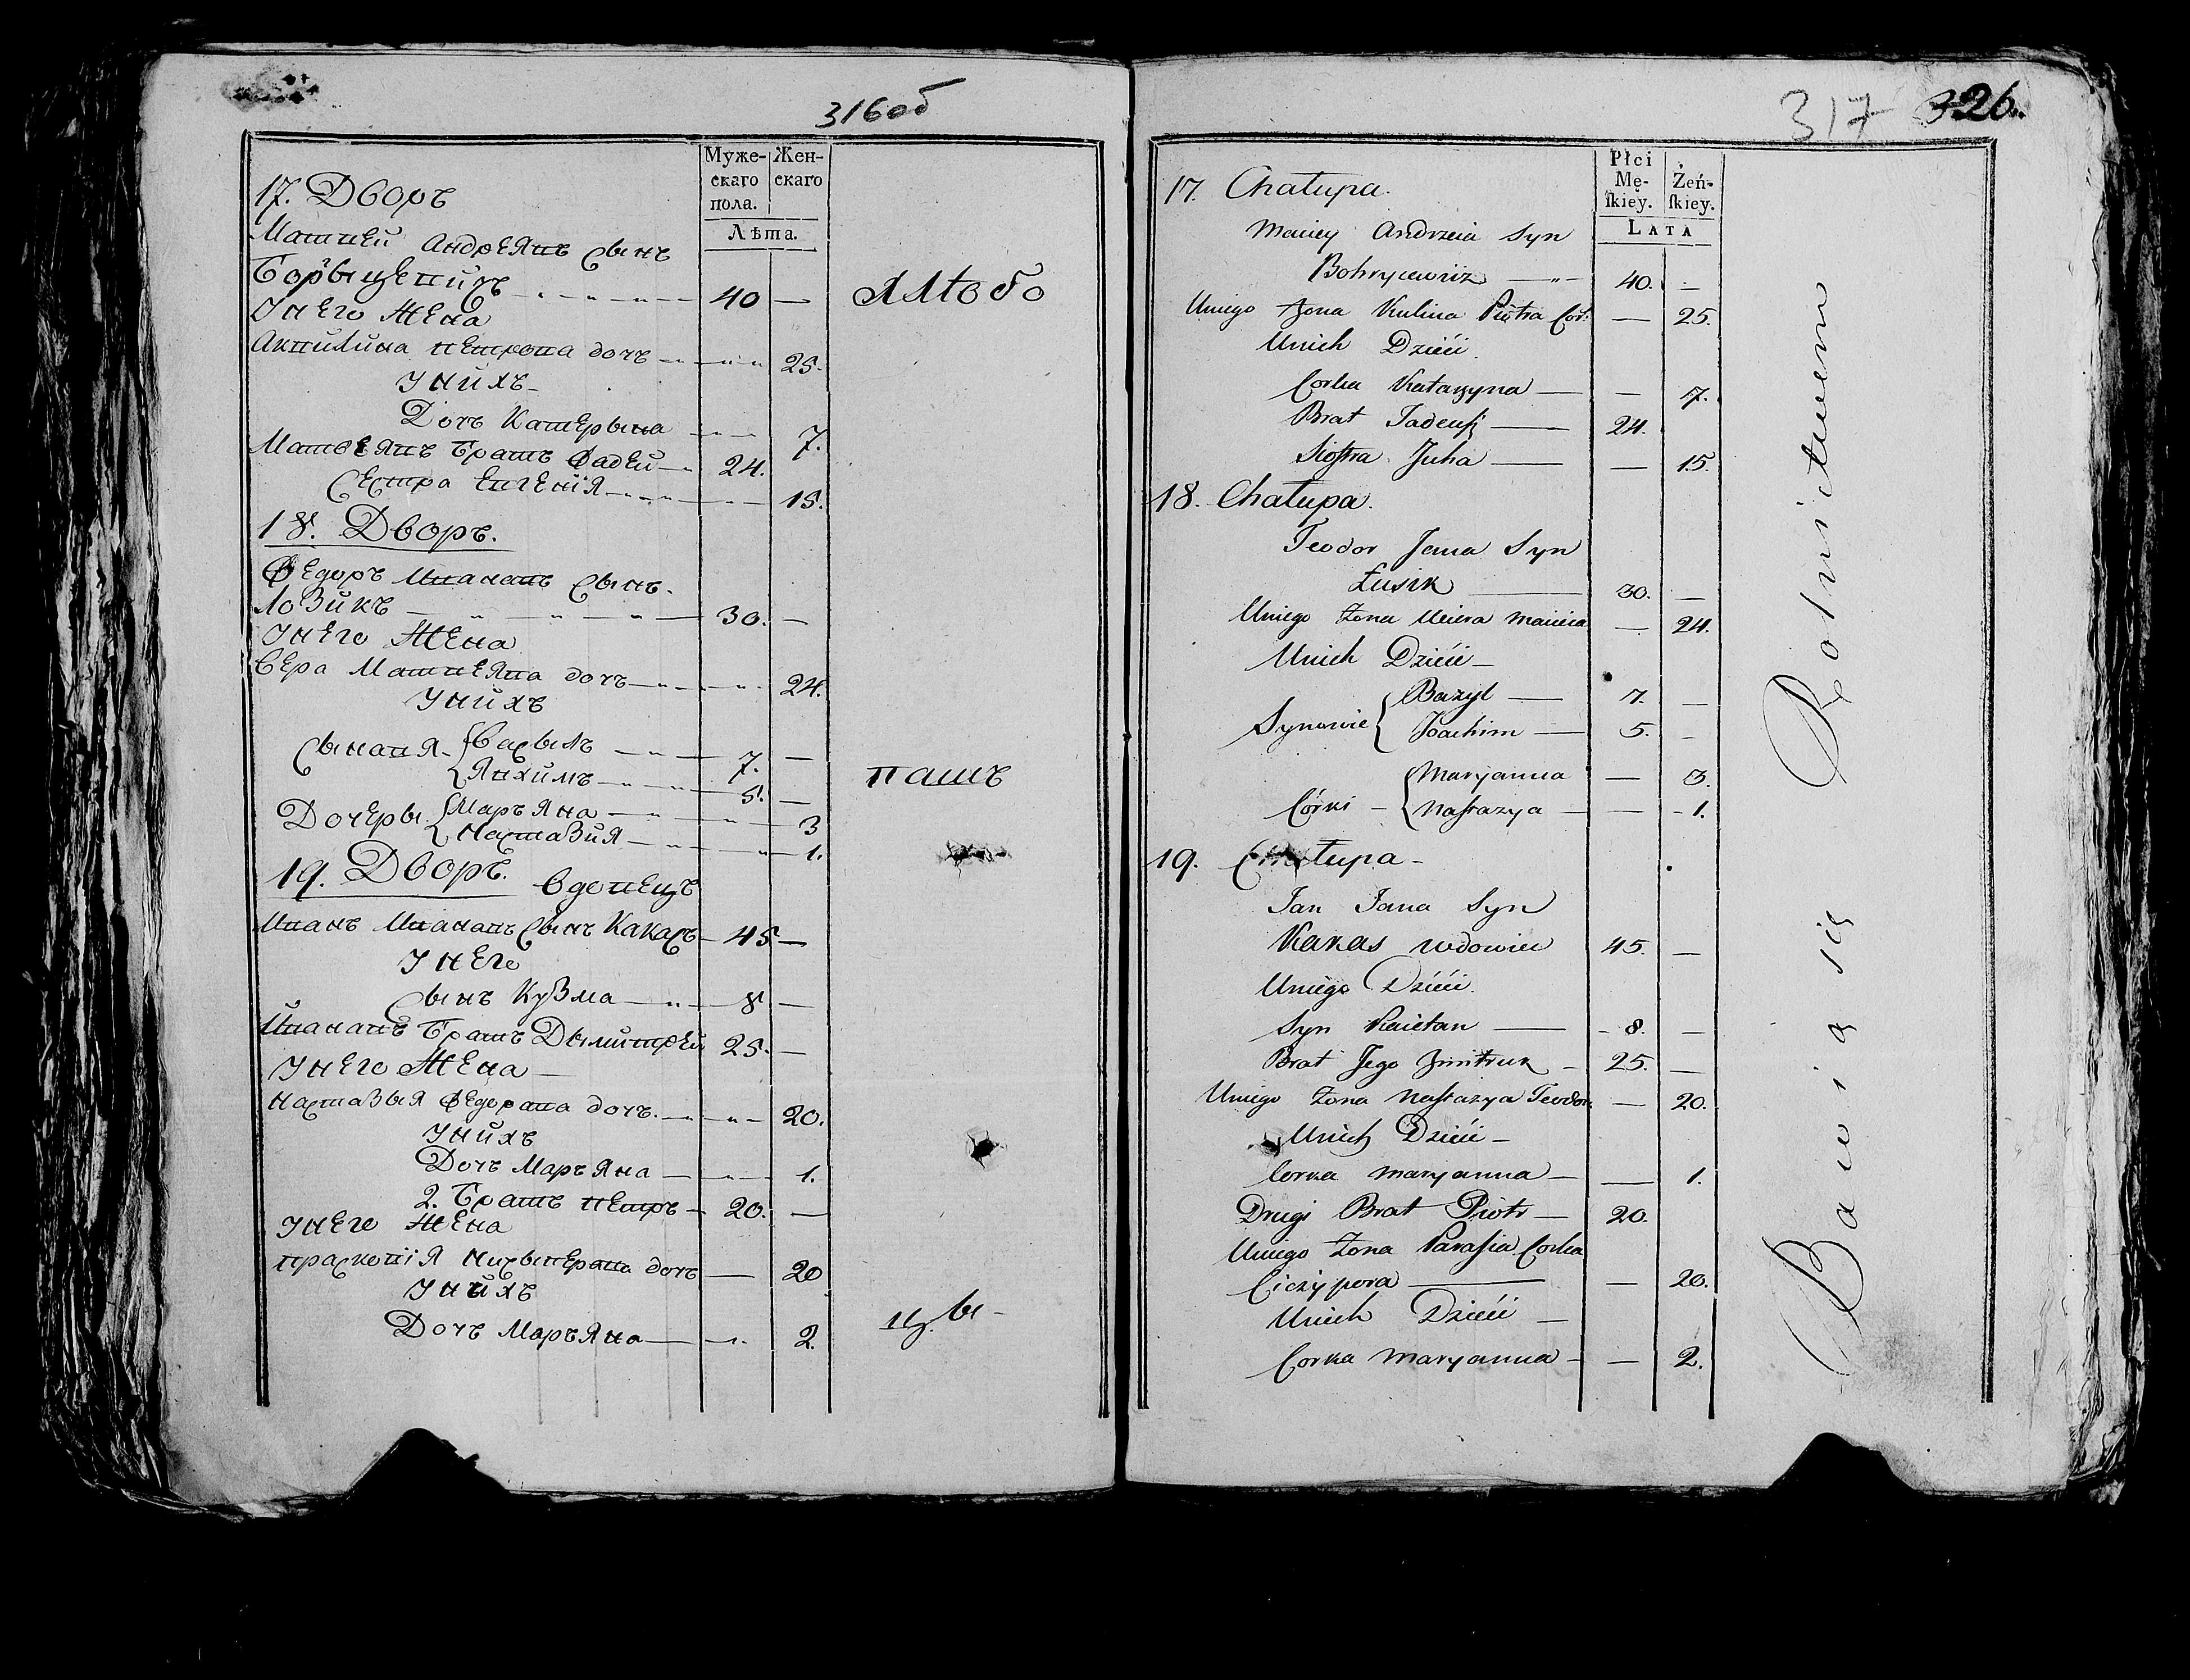 316об
Муже-
скаго
пола.
Жен-
скаго
Лѣта.
17. Дворъ
Матвей Андреявъ сынъ
40 —
У него жена
Аквилина Петрова дочъ 25.
У нихъ
Дочъ Катерына 7.
Матвеявъ братъ Фадей 24.
Сестра Евгенія 15.
18. Дворъ.
Федоръ Ивановъ сынъ.
Лозикъ 30. —
У него жена
Вера Матвеява дочъ 24.
У нихъ
Сынавя Васыль 7. —
Яхимъ 5. —
Дочеры Маръяна 3
Настазия 1.
19. Дворъ. вдовецъ
Иванъ Иванавъ сынъ Какасъ 45 —
У него
Сынъ Кузма 8 —
Иванавъ братъ Дымитрей 25. —
У него жена
Настазыя Федорава дочъ. 20.
У нихъ
Дочъ Маръяна 1.
2. братъ Петръ 20. —
У него жена
Прасковія Ничыперава дочъ 20
У нихъ
Дочъ Маръяна 2.
пашъ
цы
317 326.
Płci
Mę-
skiey.
Żeń-
skiey.
LATA
17. Chałupa.
Maciey Andrzeia Syn
Bohrycewicz 40. —
Uniego Żona Kulina Piotra Cor: — 25.
Unich Dzieci
Corka Katarzyna — 7.
Brat Tadeusz 24.
Siostra Juha — 15.
18. Chałupa.
Teodor Jana Syn
Łusik 30. —
Uniego Żona Wiera Macieia — 24.
Unich Dzieci —
Synowie Bazyl 7. —
Joachim 5. —
Córki — Maryanna — 3.
Nastazya — 1.
19. Chałupa —
Jan Jana Syn
Kakas wdowiec 45. —
Uniego Dzieci.
Syn Kaietan 8. —
Brat Jego Zmitruk 25. —
Uniego Żona Nastazya Teodor. — 20.
Unich Dzieci —
Corka Maryanna — 1.
Drugi Brat Piotr 20.
Uniego Żona Parasia Corka
Ciczypora — 20.
Unich Dzieci —
Corka Maryanna — 2.
Bawią się Rolnictwem